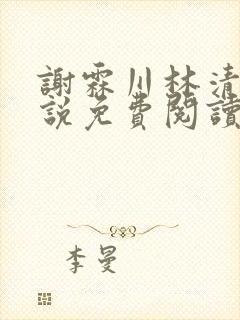 謝霖川林清
說免費閱讀
李曼